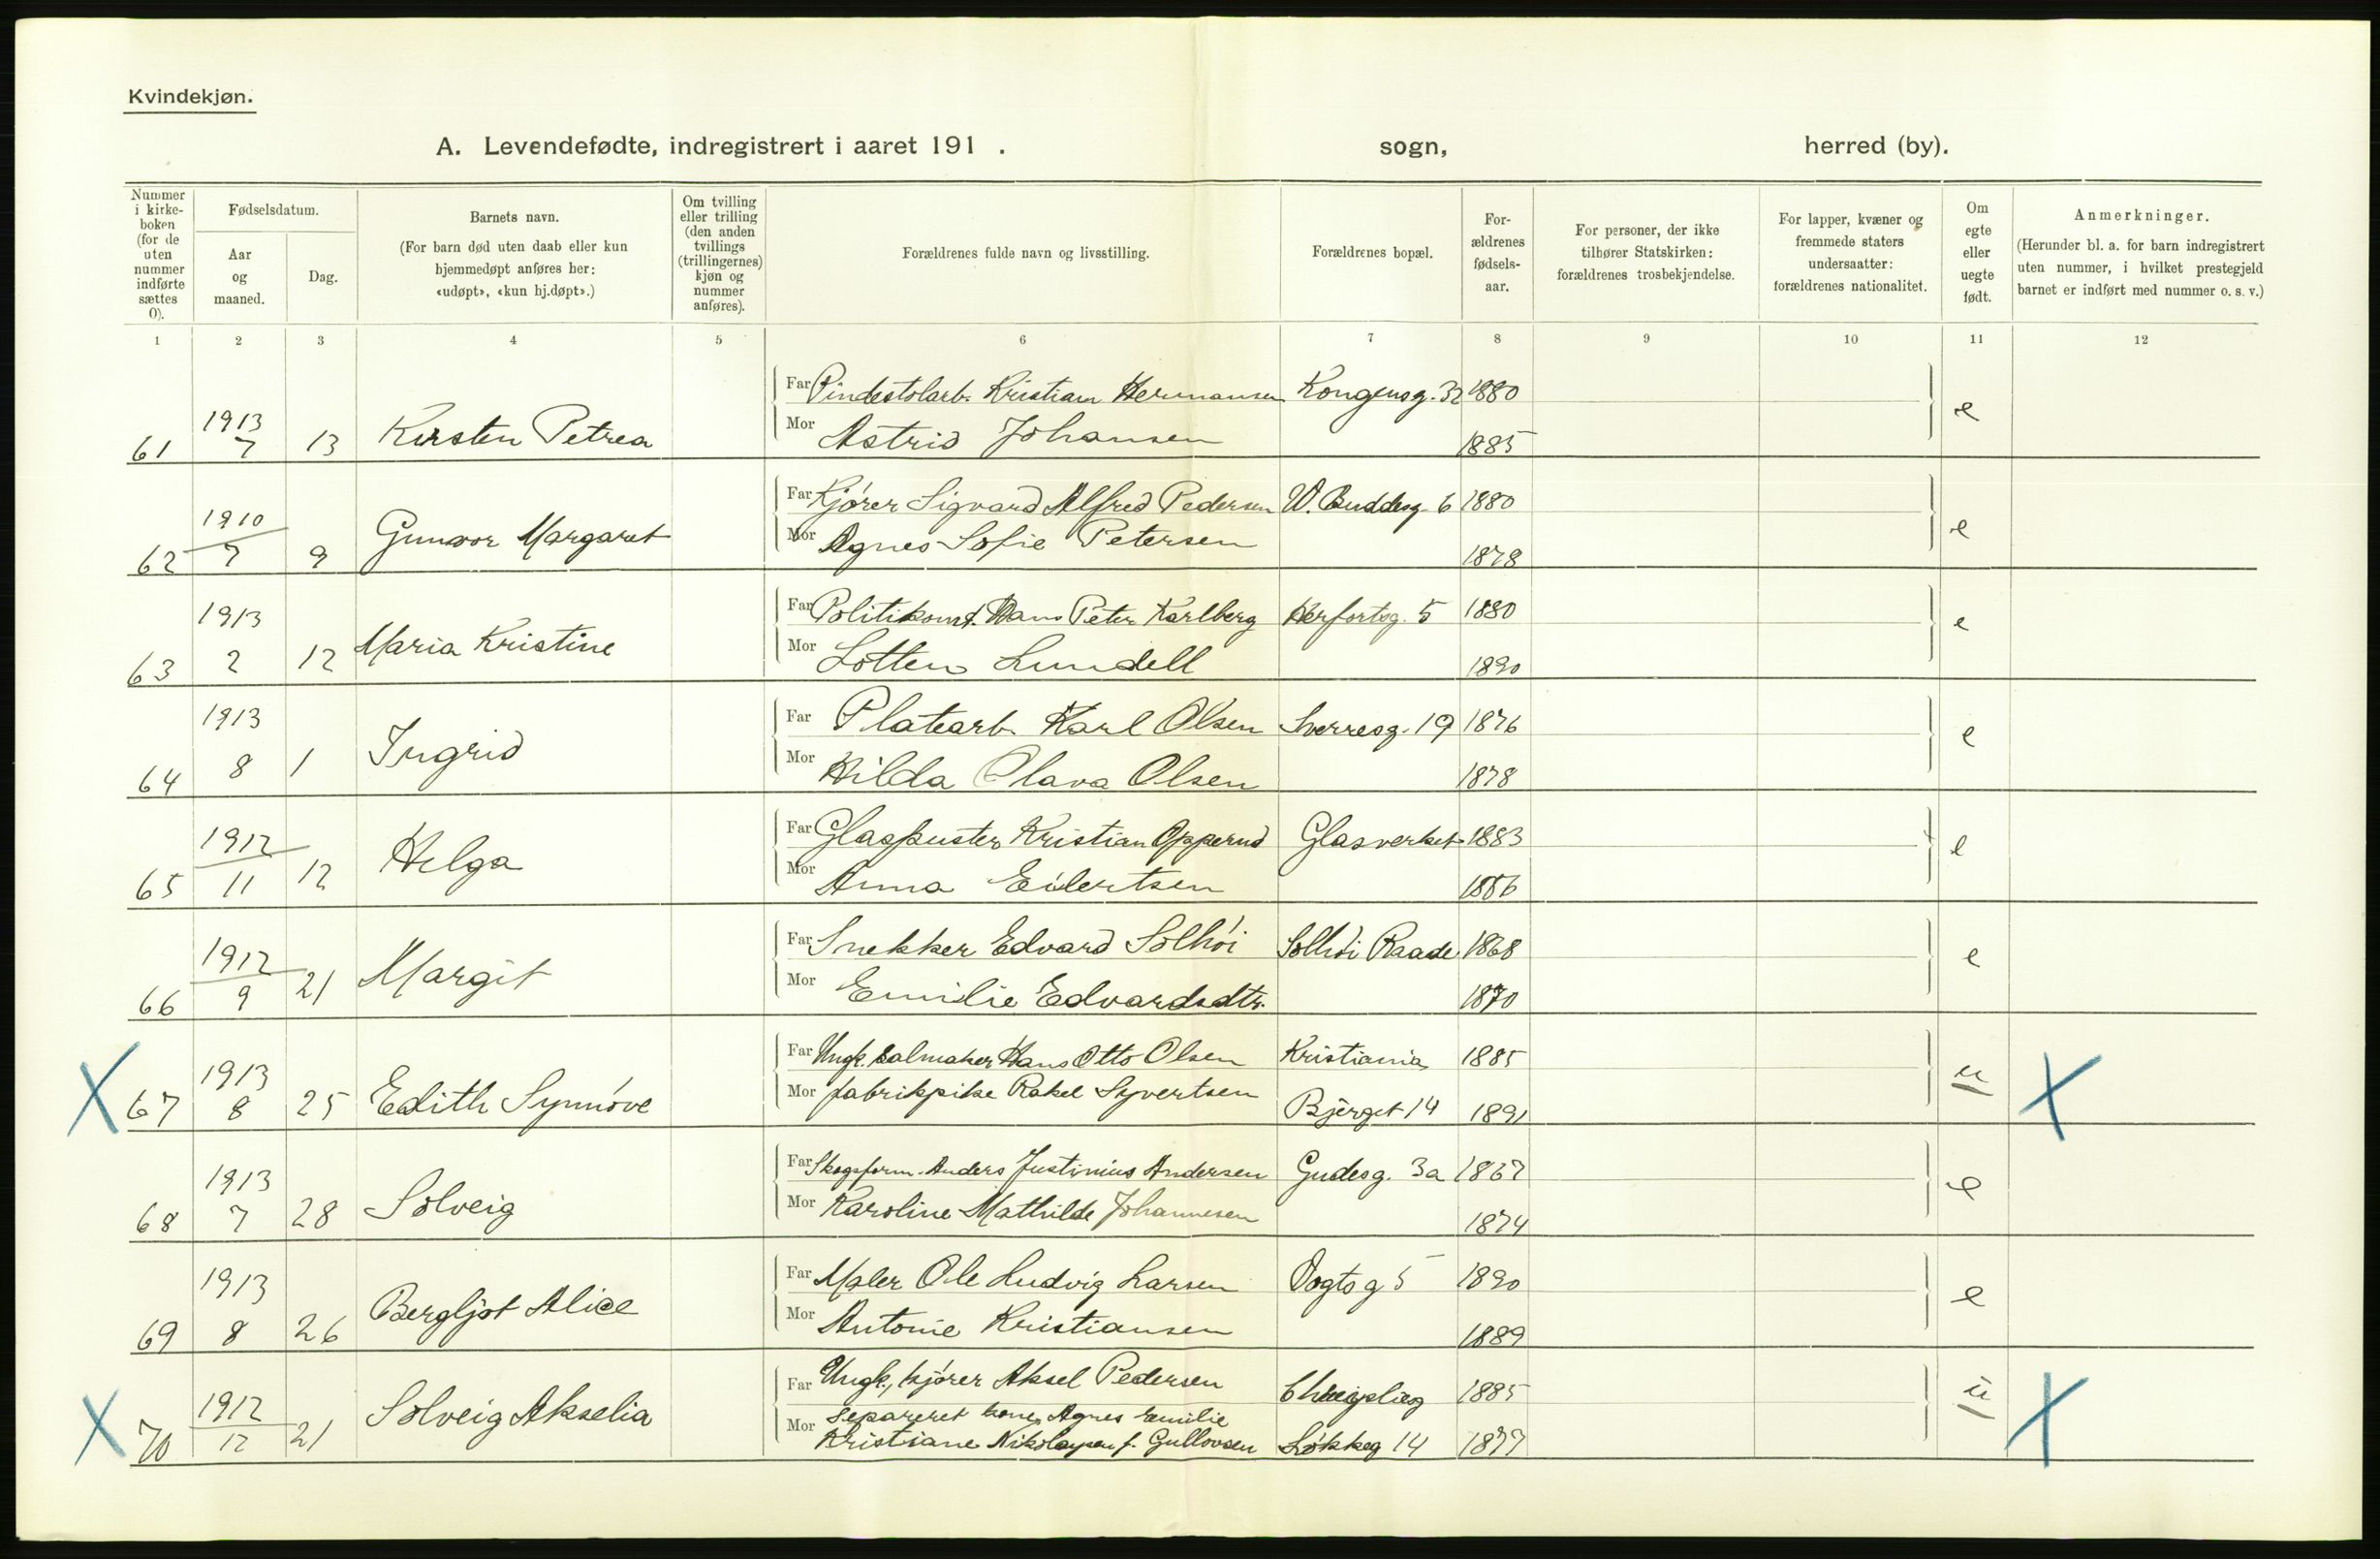 Kvindekjøn.
A. Levendefødte, indregistrert i aaret 191 . sogn, herred (by).
Nummer i kirke-boken (for de uten nummer indførte sættes 0).
Fødselsdatum.
Aar og maaned.
Dag.
Barnets navn.
(For barn død uten daab eller kun hjemmedøpt anføres her: «udøpt», «kun hj.døpt».)
Om tvilling eller trilling (den anden tvillings (trillingernes) kjøn og nummer anføres).
Forældrenes fulde navn og livsstilling.
Forældrenes bopæl.
For-ældrenes fødsels-aar.
For personer, der ikke tilhører Statskirken: forældrenes trosbekjendelse.
For lapper, kvæner og fremmede staters undersaatter: forældrenes nationalitet.
Om egte eller uegte født.
Anmerkninger.
(Herunder bl. a. for barn indregistrert uten nummer, i hvilket prestegjeld barnet er indført med nummer o. s. v.)
1 2 3 4 5 6 7 8 9 10 11 12
Far Pindestolarb. Kristian Hermansen Kongensg. 32 1880
61 1913 7 13 Kirsten Petrea e
Mor Astrid Johansen 1885
Far Kjører Sigvard Alfred Pedersen W. Buddesg 6 1880
62 1910 7 9 Gunvor Margaret e
Mor Agnes Sofie Petersen 1878
Far Politikonst. Hans Peter Karlberg Herfortsg. 5 1880
63 1913 2 12 Maria Kristine e
Mor Lotten Lundell 1890
Far Platearb. Karl Olsen Sverresg. 19 1876
64 1913 8 1 Ingrid e
Mor Hilda Olava Olsen 1878
Far Glaspuster Kristian Opperud Glasverket 1883
65 1912 11 12 Helga e
Mor Anna Eilertsen 1886
Far Snekker Edvard Solhöi Solhöi Raade 1868
66 1912 9 21 Margit e
Mor Emilie Edvardsdtr. 1870
Far Ungk. salmaker Hans Otto Olsen Kristiania 1885
67 1913 8 25 Edith Synnöve u
Mor fabrikpike Rakel Syvertsen Bjerget 14 1891
Far Skogsform. Anders Justinius Andersen Gudesg. 3a 1867
68 1913 7 28 Solveig e
Mor Karoline Mathilde Johannesen 1874
Far Maler Ole Ludvig Larsen Vogtsg 5 1890
69 1913 8 26 Bergljot Alice e
Mor Antonie Kristiansen 1889
Far Ungk., kjører Aksel Pedersen 1885
70 1912 12 21 Solveig Akselia u
Mor separeret kone Agnes Emilie
Kristiane Nikolaysen f. Gullovsen Løkkeg 14 1877